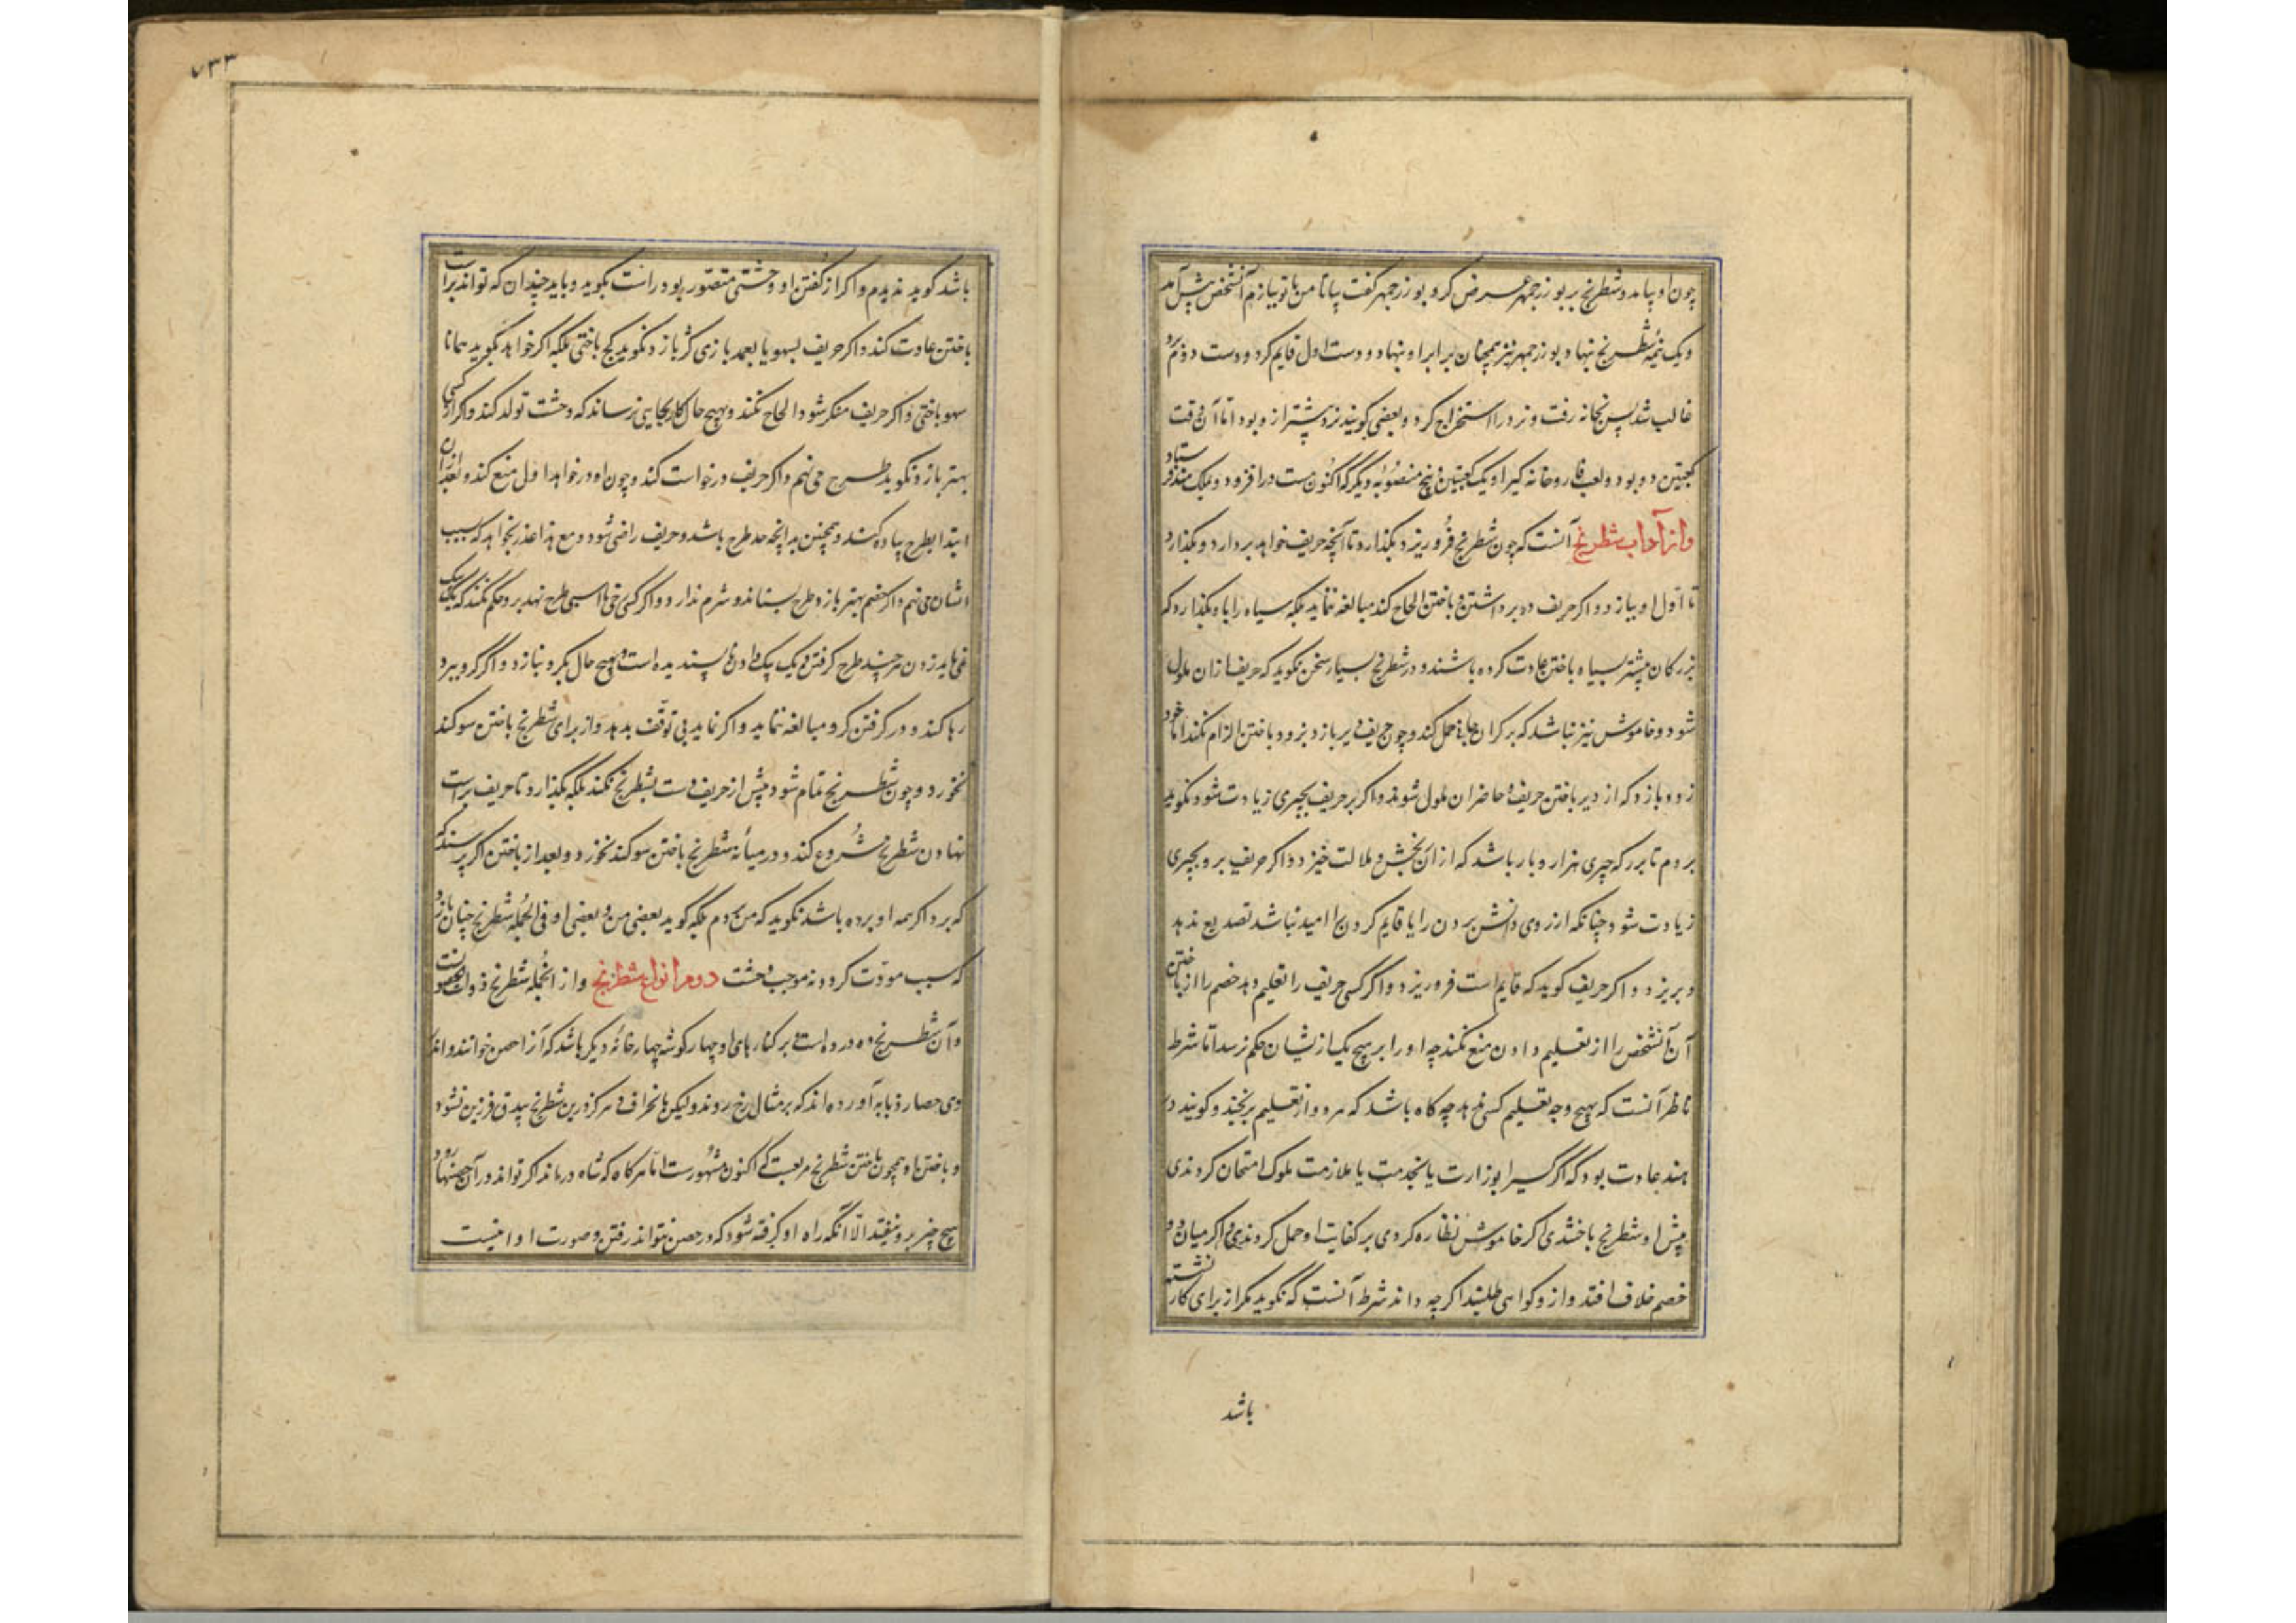 چون او پیامد و شطرنج بر بوزرجمهر عرض کرد بوزرجمهر گفت بیا تا من با تو ببازم آنشخص پیش آمد
و یک نیمهٔ شطرنج بنهاد بوزرجمهر نیز همچنان برابر او بنهاد و دست اول قایم کرد و دست دوم برو
غالب شد پس بخانه رفت و نرد را استخراج کرد و بعضی گویند نرد پیشتر از و بود اما آن وقت
کعبتین دو بود و لعب فارد و خانه گیر او یک کعبتین و پنج منصوبه دیگر که اکنون هست در افزود و بملک هند فرستاد
و از آداب شطرنج آنست که چون شطرنج فرو ریزد بگذارد تا آنچه حریف خواهد بردارد و بگذارد
تا اول او ببازد و اگر حریف در برداشتن و باختن الحاح کند مبالغه ننماید بلکه سیاه را باو بگذارد که
بزرکان بیشتر بسیاه باختن عادت کرده باشند و در شطرنج بسیار سخن نگوید که حریف از آن ملول
شود و خاموش نیز نباشد که بر گران جانی حمل کند و چون حریف دیر بازد بزود باختن الزام نکند اما خود
زود بازد که از دیر باختن حریف و حاضران ملول شوند و اگر بر حریف بچیزی زیادت شود نگوید
بردم تا ببرد که چیزی هزار و بار باشد که از آن رنجش و ملالت خیزد و اگر حریف برو بچیزی
زیادت شود چنانکه از روی دانش بردن را یا قایم کردن را امید نباشد تصدیع ندهد
و بریزد و اگر حریف گوید که قایم است فرو ریزد و اگر کسی حریف را تعلیم دهد خصم را از باختن
آن آنشخص را از تعلیم دادن منع نکند چه او را بر هیچ یک از ایشان حکم نرسد اما شرط
ناظر آنست که بهیچ وجه تعلیم کسی ندهد چه گاه باشد که هر دو از تعلیم برنجند و گویند در
هند عادت بود که اگر کسی را بوزارت یا بخدمت یا ملازمت ملوک امتحان کردندی
پیش او شطرنج باختندی اگر خاموش نظاره کردی بر کفایت او حمل کردندی و اگر میان دو
خصم خلاف افتد و از و گواهی طلبند اگر چه داند شرط آنست که نگوید مگر از برای کار نشسته
باشد
۷۳۳
باشد گوید ندیدم و اگر از گفتن او وحشتی متصور بود راست بگوید و باید چندان که تواند براست
باختن عادت کند و اگر حریف بسهو یا بعمد بازی کژ بازد نگوید کج باختی بلکه اگر خواهد بگوید همانا
سهو باختی و اگر حریف منکر شود الحاح نکند و بهیچ حال کار بجایی نرساند که وحشت تولد کند و اگر از کسی
بهتر بازد نگوید طرح می نهم و اگر حریف درخواست کند و چون او درخواهد اول منع کند و بعد از آن
ابتدا بطرح پیاده کند و همچنین بدانچه حد طرح باشد و حریف راضی شود و مع هذا عذر بخواهد که بسبب
نشان می نهم و اگر خصم بهتر بازد طرح بستاند و شرم ندارد و اگر کسی رخی یا اسبی طرح نهد برو حکم نکند که یک یک
می باید زدن هر چند طرح گرفتن و یک یک دادن ناپسندیده است و بهیچ حال بگرو نبازد و اگر گرو ببرد
رها کند و در گرفتن گرو مبالغه ننماید و اگر نماید بی توقف بدهد و از برای شطرنج باختن سوگند
نخورد و چون شطرنج تمام شود پیش از حریف دست بشطرنج نکند بلکه بگذارد تا حریف براست
نهادن شطرنج شروع کند و در میانهٔ شطرنج باختن سوگند نخورد و بعد از باختن اگر پرسند که
که برد اگر همه او برده باشد نگوید که من بردم بلکه گوید بعضی من و بعضی او فی الجمله شطرنج چنان بازد
که سبب مودت گردد نه موجب وحشت دوم انواع شطرنج و از آنجمله شطرنج ذوات الحصونست
و آن شطرنج ده در ده است و بر کنارهای او چهار گوشه چهار خانهٔ دیگر باشد که آنرا حصن خوانند و اندر
وی حصار ذبابه آورده اند که بر مثال رخ روند و لیکن بانحراف و هرگز درین شطرنج بیدق فرزین نشود
و باختن او همچون باختن شطرنج مربعست که اکنون مشهورست اما هر گاه که شاه درماند اگر تواند در آن حصنها رود
هیچ چیز برو نیفتد الا آنگه راه او گرفته شود که در حصن نتواند رفتن و صورت او اینست